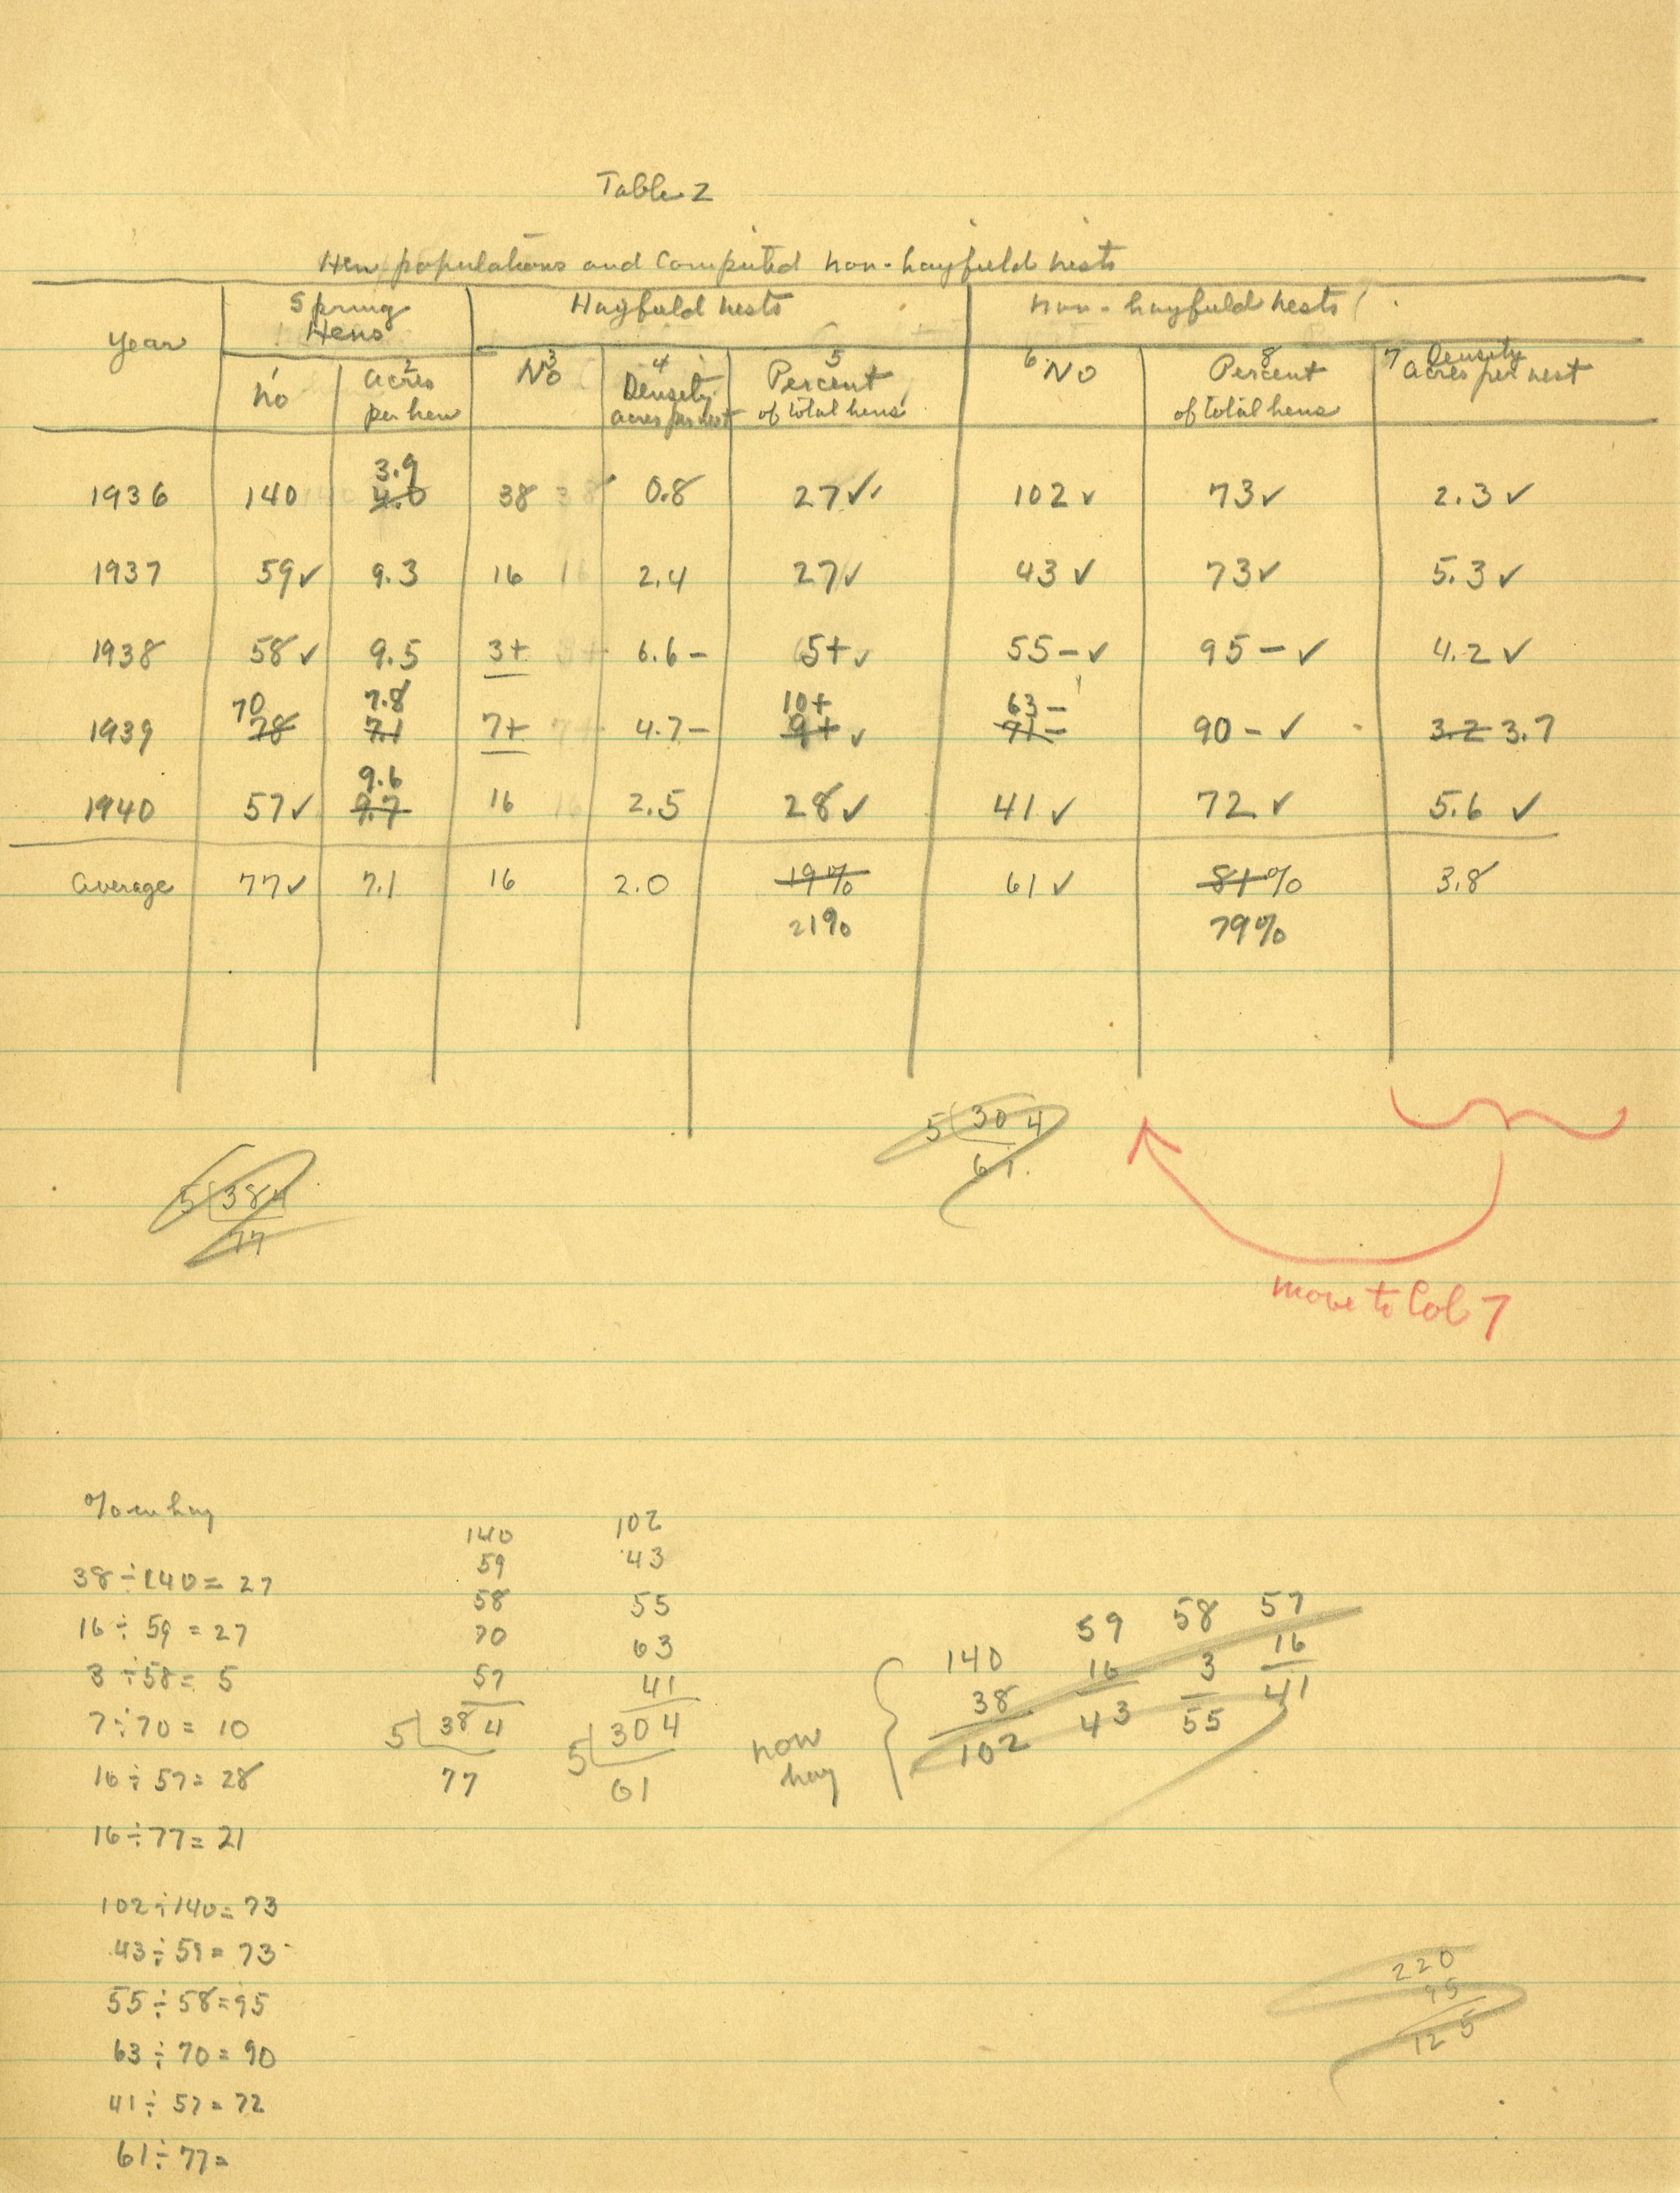 Table 2
Hen populations and computed non-hayfield nests
Year
Spring Hens
Hayfield nests
Non-hayfield nests
1 No
2 Acres per hen
3 No
4 Density acres per nest
5 Percent of total hens
6 No
8 Percent of total hens
7 Density acres per nest
1936 140 3.9 4.0 38 0.8 27 ✓ 102 ✓ 73 ✓ 2.3 ✓
1937 59 ✓ 9.3 16 2.4 27 ✓ 43 ✓ 73 ✓ 5.3 ✓
1938 58 ✓ 9.5 3+ 6.6- 5+ ✓ 55- ✓ 95- ✓ 4.2 ✓
1939 70 78 7.8 7.1 7+ 4.7- 10+ 9+ ✓ 63- 71- 90- ✓ 3.2 3.7
1940 57 ✓ 9.6 9.7 16 2.5 28 ✓ 41 ✓ 72 ✓ 5.6 ✓
Average 77 ✓ 7.1 16 2.0 19% 61 ✓ 81% 3.8
21% 79%
5 304
61
5 384
77
move to Col 7
% in hay
38 ÷ 140 = 27
16 ÷ 59 = 27
3 ÷ 58 = 5
7 ÷ 70 = 10
16 ÷ 57 = 28
16 ÷ 77 = 21
102 ÷ 140 = 73
43 ÷ 59 = 73
55 ÷ 58 = 95
63 ÷ 70 = 90
41 ÷ 57 = 72
61 ÷ 77 =
140
59
58
70
57
5 384
77
102
43
55
63
41
5 304
61
non hay
140
38
102
59
16
43
58
3
55
57
16
41
220
95
125